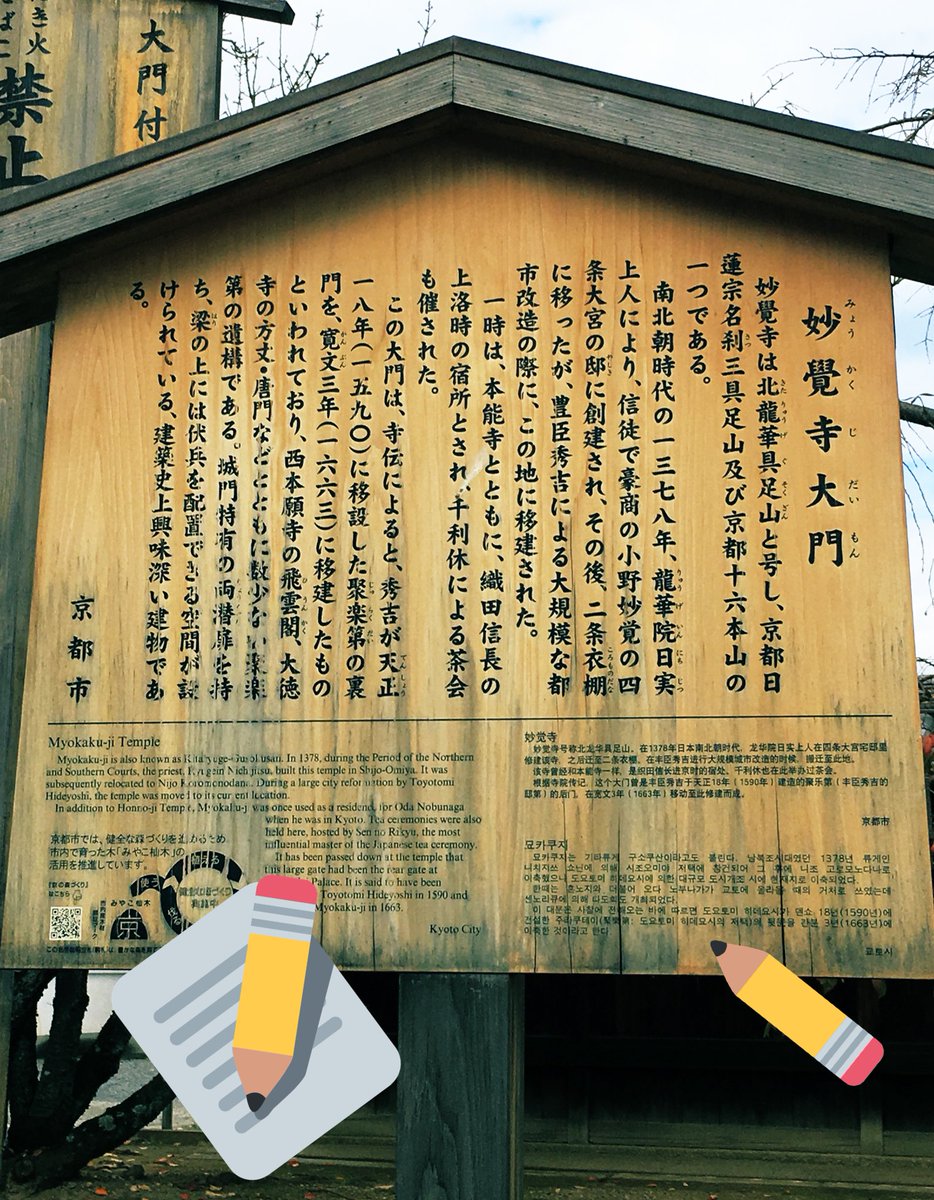 大門付
き火
ばこ
禁止
妙覺寺大門
みょうかくじだいもん
妙覺寺は北龍華具足山と号し、京都日
蓮宗名刹三具足山及び京都十六本山の
一つである。
南北朝時代の一三七八年、龍華院日実
上人により、信徒で豪商の小野妙覚の四
条大宮の邸に創建され、その後、二条衣棚
に移ったが、豊臣秀吉による大規模な都
市改造の際に、この地に移建された。
一時は、本能寺とともに、織田信長の
上洛時の宿所とされ、千利休による茶会
も催された。
この大門は、寺伝によると、秀吉が天正
一八年(一五九〇)に移設した聚楽第の裏
門を、寛文三年(一六六三)に移建したもの
といわれており、西本願寺の飛雲閣、大徳
寺の方丈・唐門などとともに数少ない聚楽
第の遺構である。城門特有の両潜扉を持
ち、梁の上には伏兵を配置できる空間が設
けられている、建築史上興味深い建物であ
る。
京都市
Myokaku-ji Temple
Myokaku-ji is also known as In 1378, during the Period of the Northern
and Southern Courts, the priest, built this temple in Shijo-Omiya. It was
subsequently relocated to Nijo Koromonodana. During a large city reformation by Toyotomi
Hideyoshi, the temple was moved to its current location.
In addition to Honno-ji Temple, Myokaku-ji was once used as a residence for Oda Nobunaga
when he was in Kyoto. Tea ceremonies were also
held here, hosted by Sen no Rikyu, the most
influential master of the Japanese tea ceremony.
It has been passed down at the temple that
this large gate had been the rear gate at
Palace. It is said to have been
Toyotomi Hideyoshi in 1590 and
Myokaku-ji in 1663.
Kyoto City
京都市では、健全な森づくりを進めるため、
市内で育った木「みやこ杣木」の
活用を推進しています。
「京の森づくり」
はこちら
みやこ杣木
京
使う
植える
妙觉寺
妙觉寺号称北龙华具足山。在1378年日本南北朝时代，龙华院日实上人在四条大宫宅邸里
修建该寺，之后迁至二条衣棚。在丰臣秀吉进行大规模城市改造的时候，搬迁至此地。
该寺曾经和本能寺一样，是织田信长进京时的宿处，千利休也在此举办过茶会。
根据寺院传记，这个大门曾是丰臣秀吉于天正18年（1590年）建造的聚乐第（丰臣秀吉的
邸第）的后门，在宽文3年（1663年）移动至此修建而成。
京都市
묘카쿠지
묘카쿠지는 기타류게 구소쿠산이라고도 불린다. 남북조시대였던 1378년 류게인
니치지쓰 쇼닌에 의해 시조오미야 저택에 창건되어 그 후에 니조 고로모노다나로
이축했으나 도요토미 히데요시에 의한 대규모 도시개조 시에 현재지로 이축되었다.
한때는 혼노지와 더불어 오다 노부나가가 교토에 올라올 때의 거처로 쓰였는데
센노리큐에 의해 다도회도 개최되었다.
이 대문은 사찰에 전해오는 바에 따르면 도요토미 히데요시가 덴쇼 18년(1590년)에
건설한 주라쿠테이(聚樂第: 도요토미 히데요시의 저택)의 뒷문을 간분 3년(1663년)에
이축한 것이라고 한다.
교토시